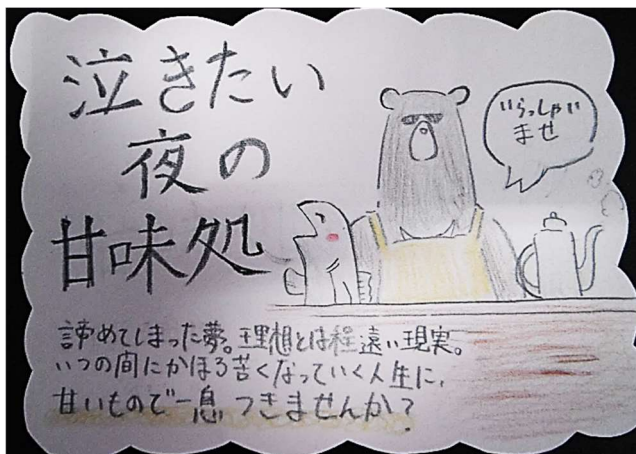 泣きたい
夜の
甘味処
いらっしゃい
ませ
諦めてしまった夢。理想とは程遠い現実。
いつの間にかほろ苦くなっていく人生に、
甘いもので一息つきませんか？